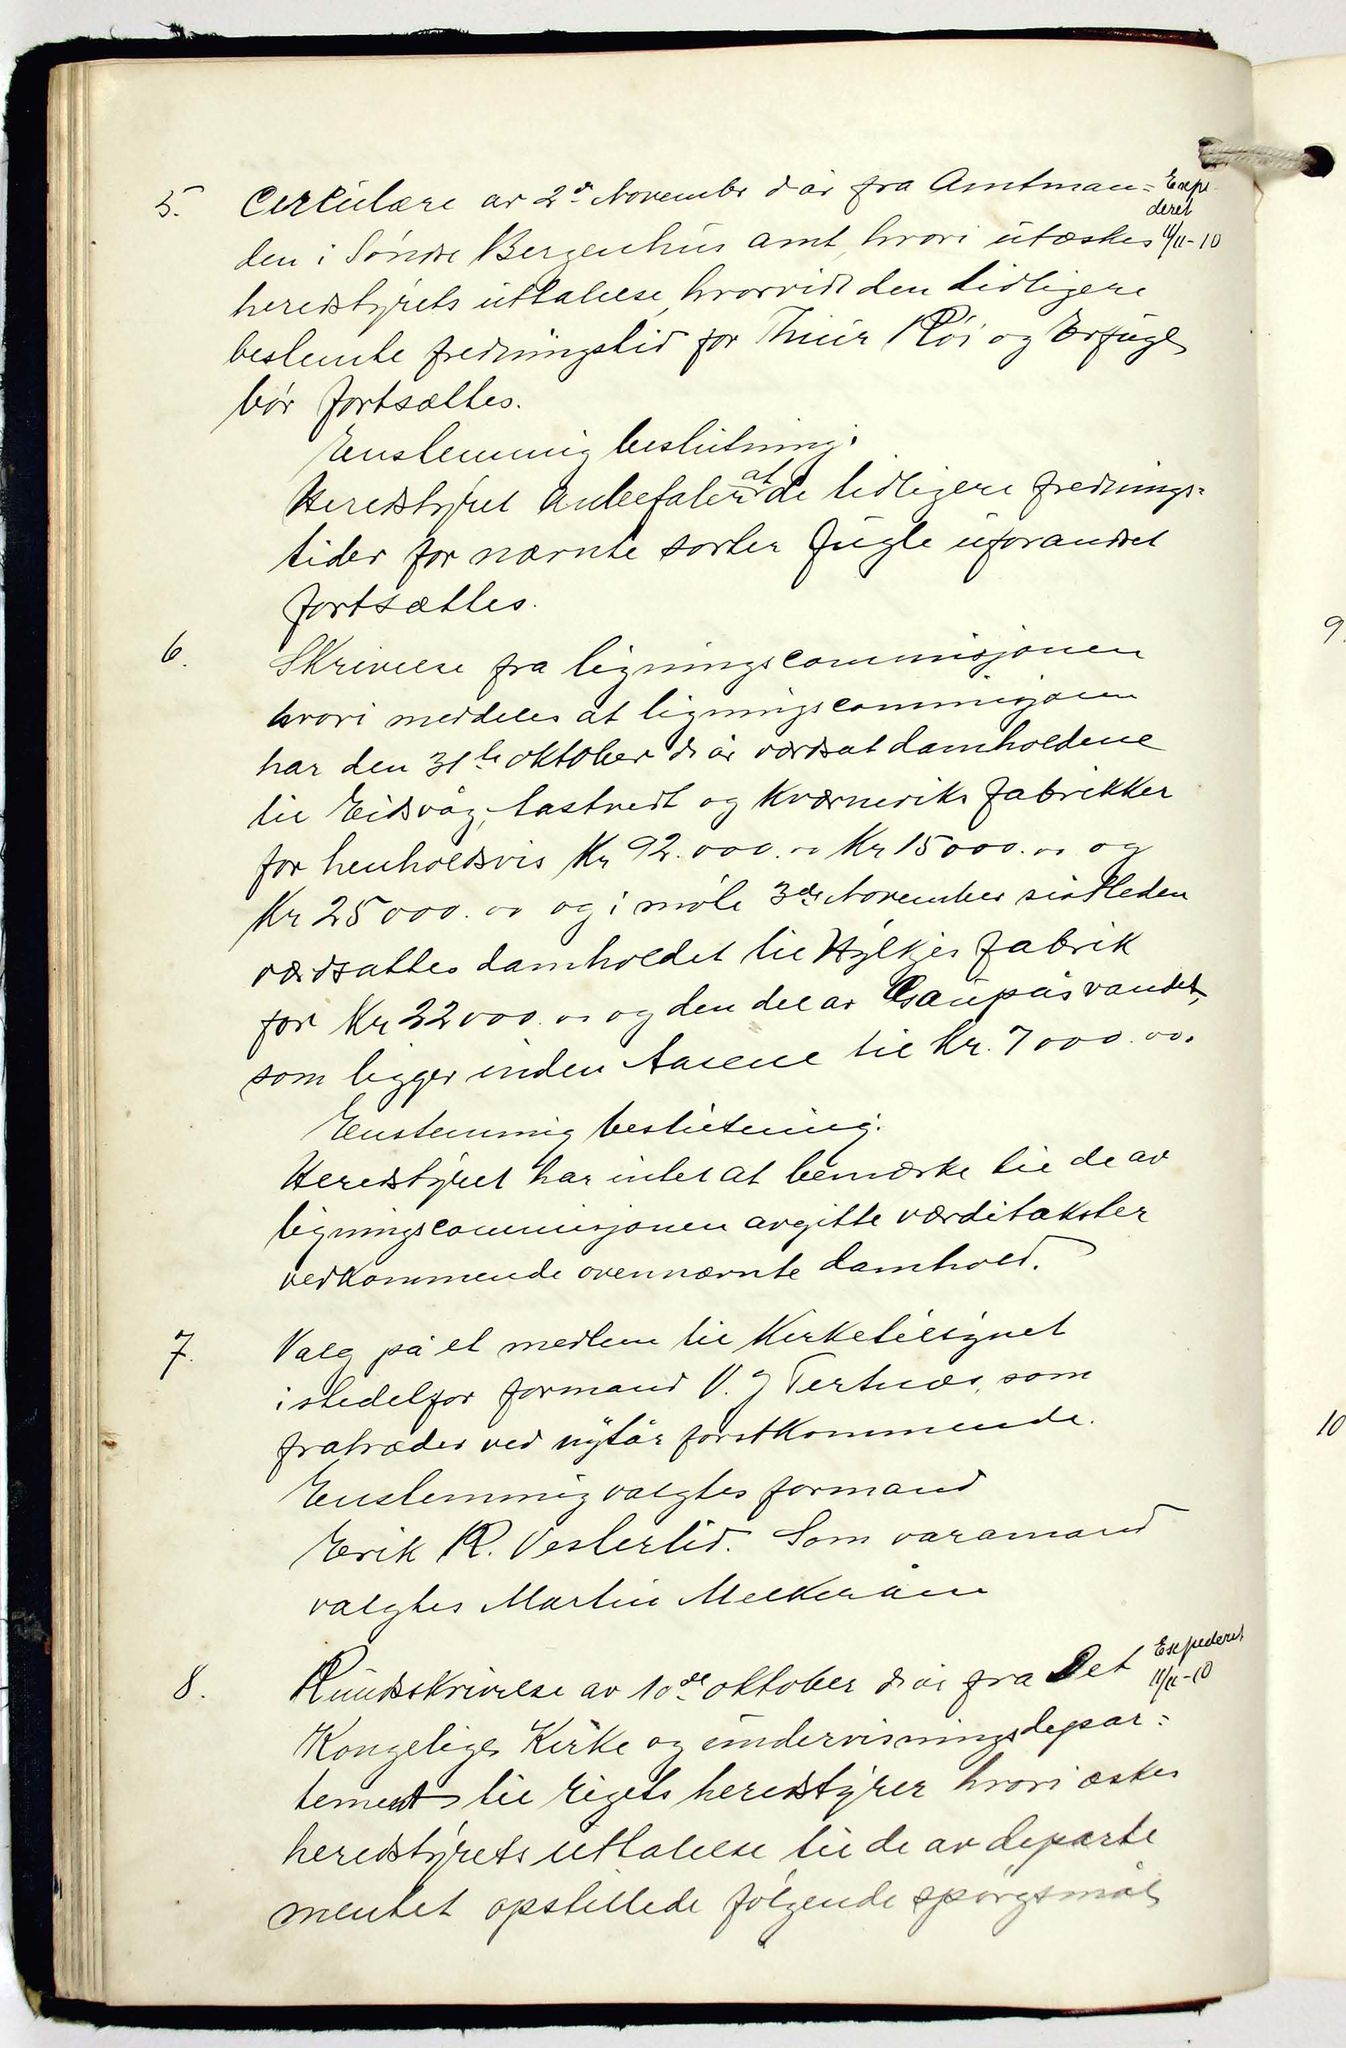 5. Cirkulære av 2d November d år fra Amtman=
Expe-
deret
11/11-10
den i Søndre Bergenhus amt, hvori utæskes
heredstyrets uttalelse, hvorvidt den tidligere
bestemte fredningstid for Thiur Røi og Erfugl
bør fortsættes.
Enstemmig beslutning:
Heredstyret anbefaler at de tidligere frednings=
tider for nævnte sorter fugle uforandret
fortsættes.
6. Skrivelse fra ligningscommisjonen
hvori meddeles at ligningscommisjonen
har den 31te oktober d. år værdsat damholdene
til Eidsvåg, Hastvedt og Kværneviks fabrikker
for henholdsvis Kr 92.000.00 Kr 15000.00 og
Kr 25000.00 og i møte 3de November sidstleden
værdsattes damholdet til Hylkjes fabrik
for Kr 22000.00 og den del av Gaupåsvandet,
som ligger inden Aasene til Kr. 7000.00.
Enstemmig beslutning:
Heredstyret har intet at bemærke til de av
ligningscommisjonen avgitte værditakster
vedkommende ovennævnte damhold.
7. Valg på et medlem til Kirketilsynet
istedetfor formand V. J Tertnæs, som
fratræder ved nytår førstkommende.
Enstemmig valgtes formand
Erik R. Vestertid. Som varamand
valgtes Martin Melkeråen
8. Rundskrivelse av 10de oktober d. år fra Det
Expederet
11/11-10
Kongelige Kirke og undervisningsdepar=
tement til rigets heredstyrer hvori æskes
heredstyrets uttalelse til de av departe
mentet opstillede følgende spørgsmål
9.
10